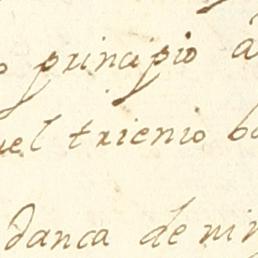 o principio a
uel trienio
danca de nin